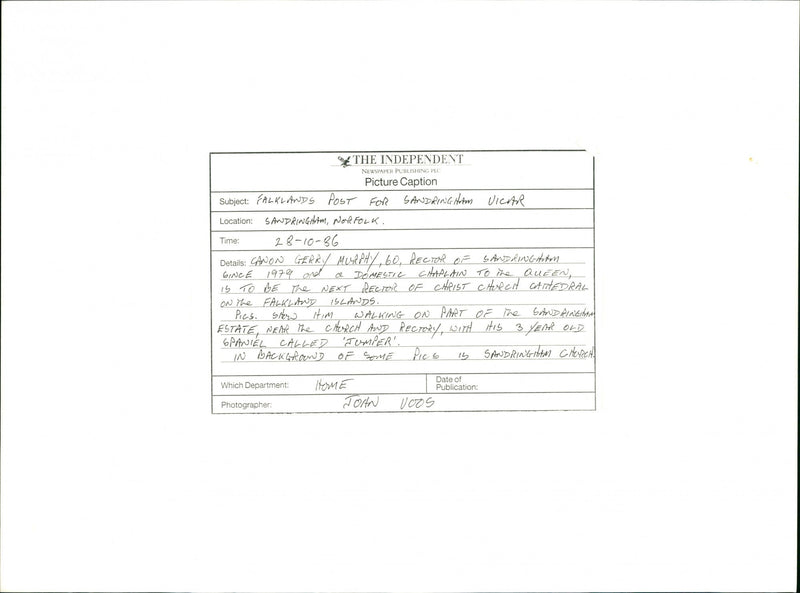 THE INDEPENDENT
NEWSPAPER PUBLISHING PLC
Picture Caption
Subject: FALKLANDS POST FOR SANDRINGHAM VICAR
Location: SANDRINGHAM, NORFOLK.
Time: 28-10-86
Details: CANON GERRY MURPHY, 60, RECTOR OF SANDRINGHAM
SINCE 1979 and a DOMESTIC CHAPLAIN TO the QUEEN,
IS TO BE the NEXT RECTOR OF CHRIST CHURCH CATHEDRAL
ON the FALKLAND ISLANDS.
PICS. SHOW HIM WALKING ON PART OF the SANDRINGHAM
ESTATE, NEAR the CHURCH AND RECTORY, WITH HIS 3 YEAR OLD
SPANIEL CALLED 'JUMPER'.
IN BACKGROUND OF SOME PICS IS SANDRINGHAM CHURCH.
Which Department: HOME
Date of
Publication:
Photographer: JOHN VOOS